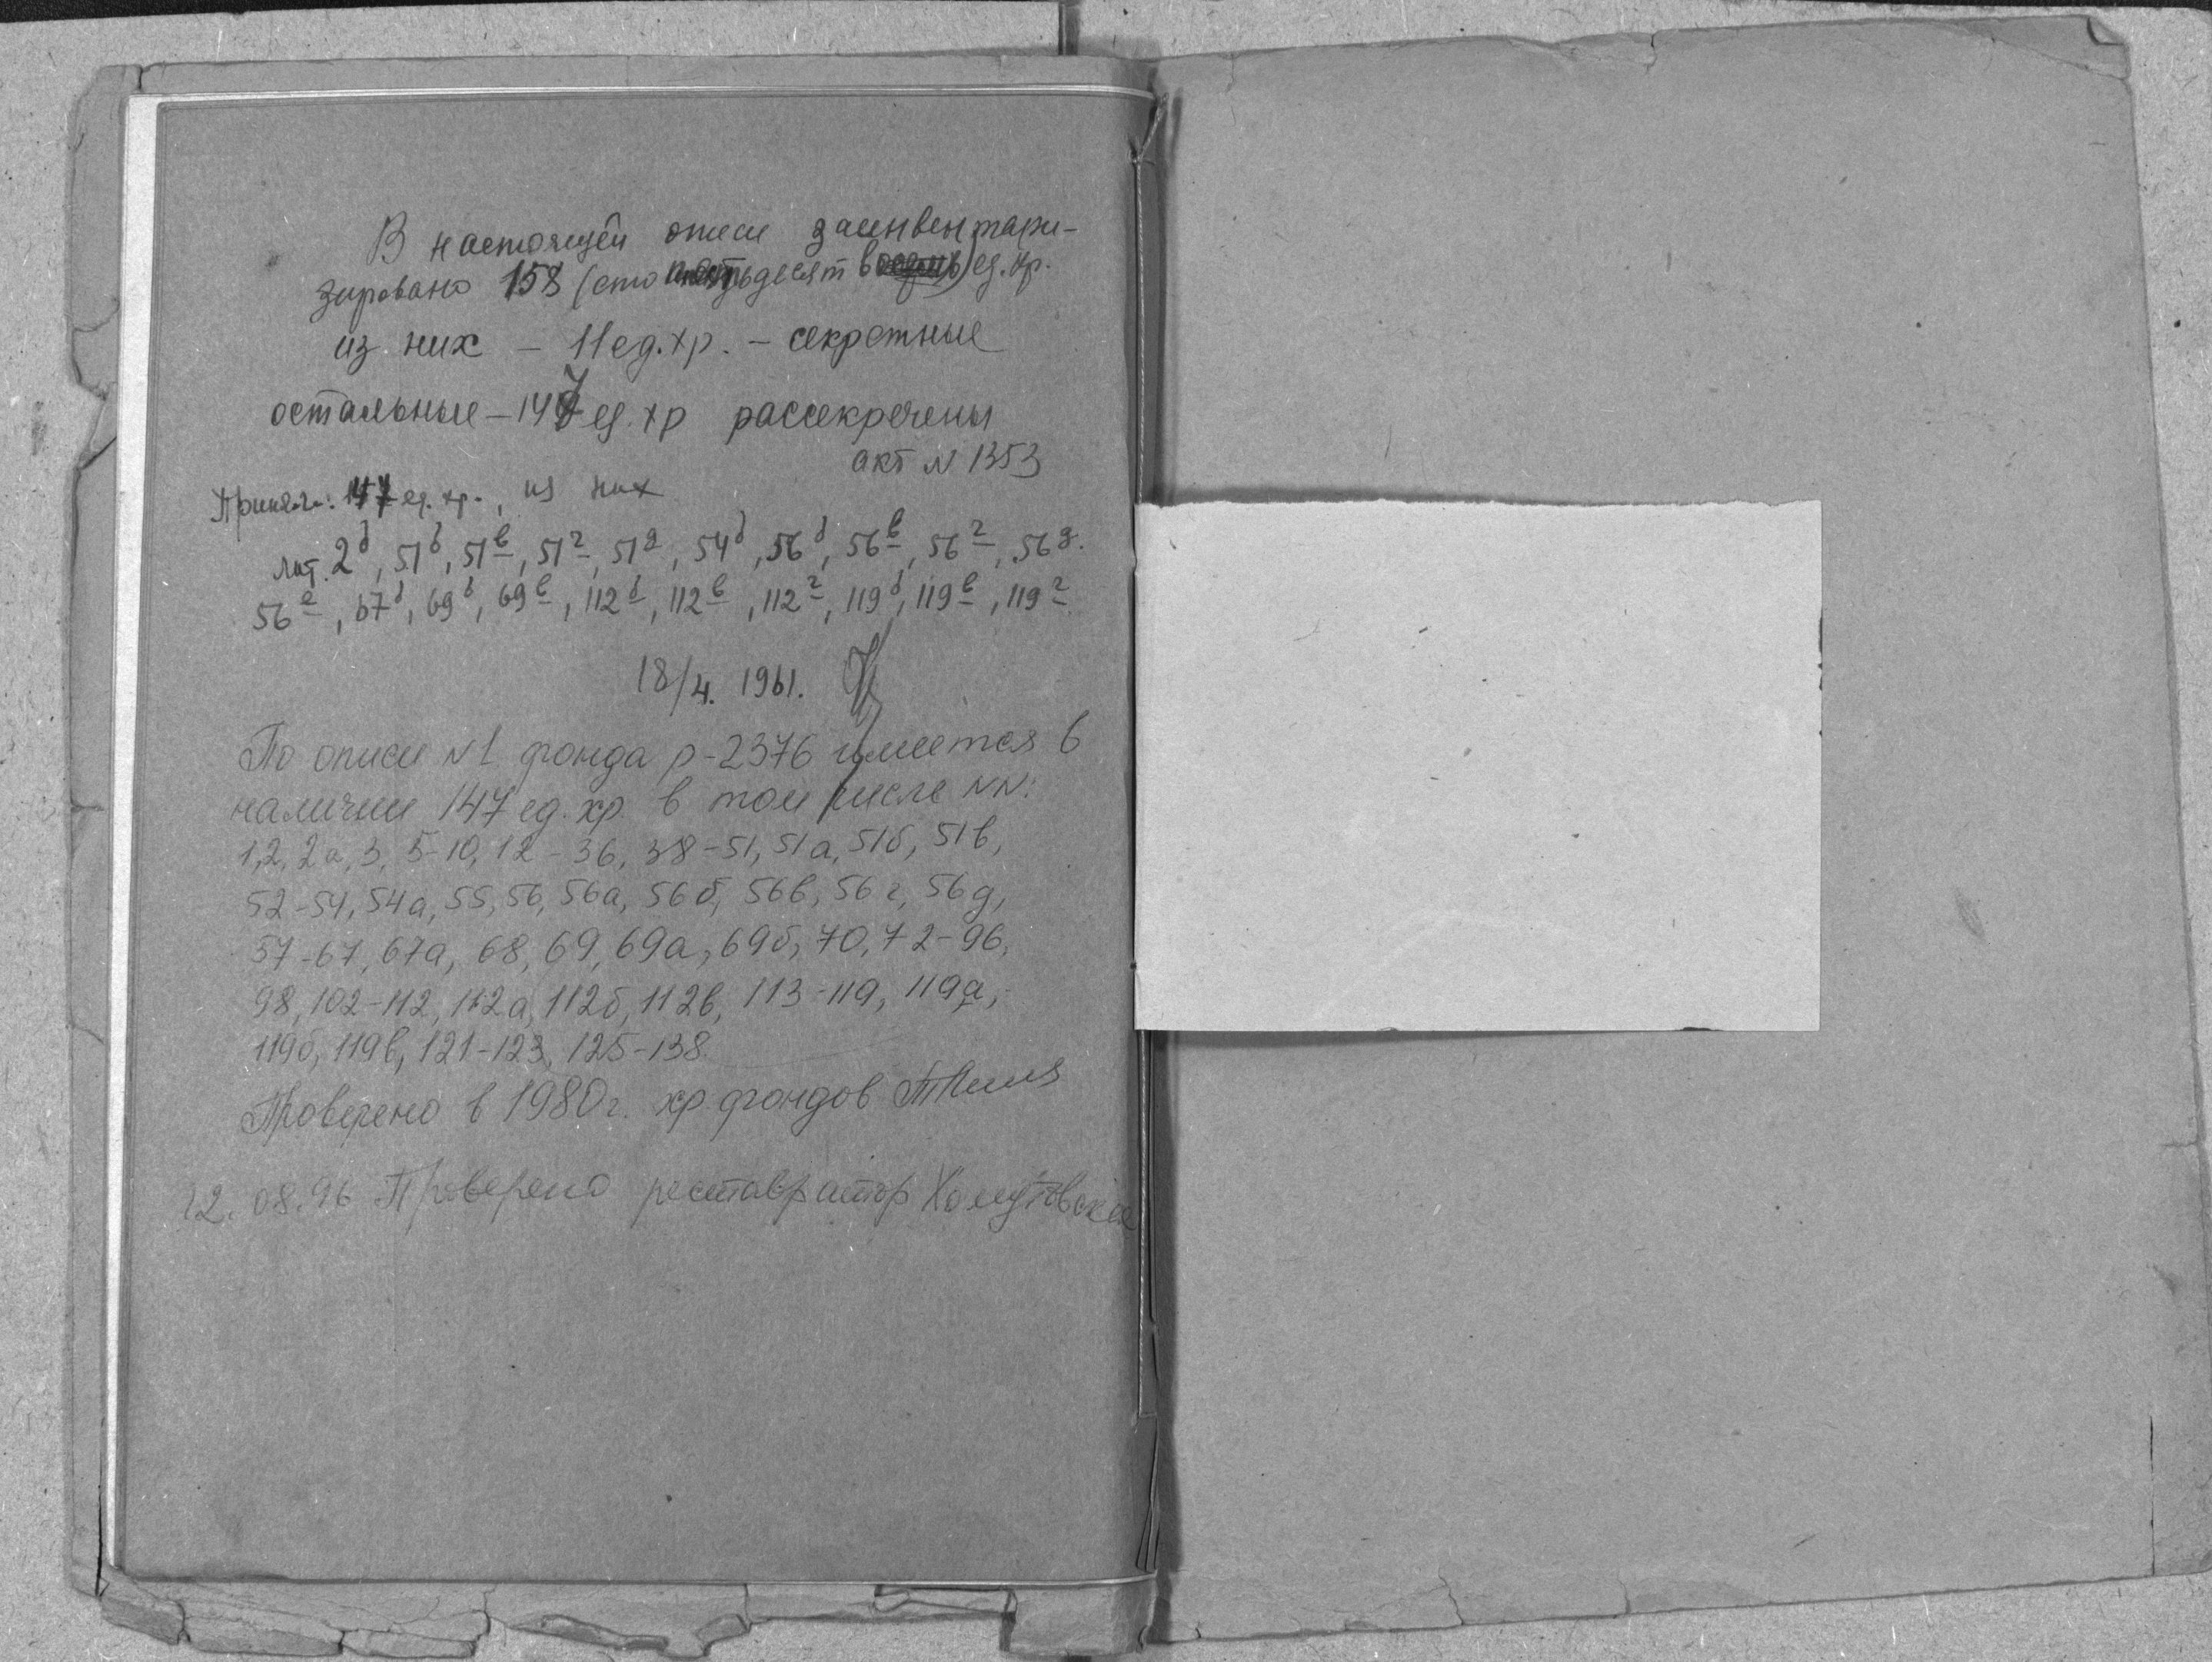 В настоящей описи заинвентари-
зировано 158 (сто пятьдесят восемь) ед. хр.
из них – 11 ед. хр. – секретные
остальные – 147 ед. хр рассекречены
акт № 1353
Приняла: 147 ед. хр., из них
лит. 2б, 51б, 51в, 51г, 51д, 54б, 56б, 56в, 56г, 56д.
56е, 67б, 69б, 69в, 112б, 112в, 112г, 119б, 119в, 119г
18/4. 1961.
По описи №1 фонда р-2376 имеется в
наличии 147 ед. хр. в том числе NN:
1, 2, 2а, 3, 5-10, 12-36, 38-51, 51а, 51б, 51в,
52-54, 54а, 55, 56, 56а, 56б, 56в, 56г, 56д,
57-67, 67а, 68, 69, 69а, 69б, 70, 72-96,
98, 102-112, 112а, 112б, 112в, 113-119, 119а,
119б, 119в, 121-123, 125-138
Проверено в 1980г. хр. фондов
12.08.96 Проверено реставратор Хомутовская